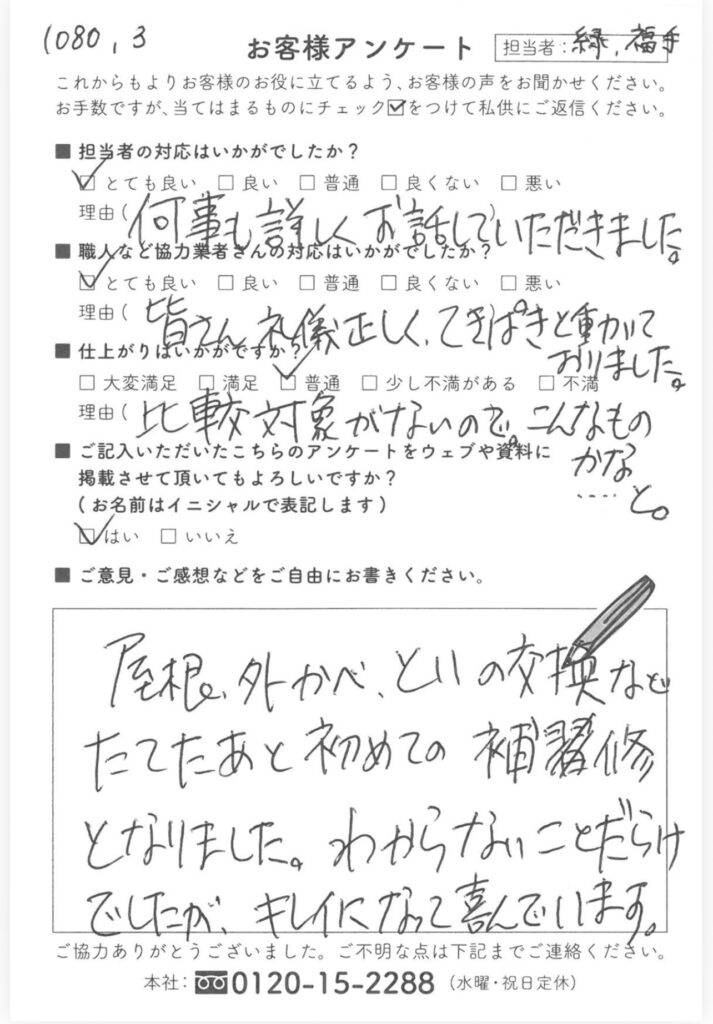 1080,3
お客様アンケート 担当者:緑,福手
これからもよりお客様のお役に立てるよう、お客様の声をお聞かせください。
お手数ですが、当てはまるものにチェック☑をつけて私供にご返信ください。
■ 担当者の対応はいかがでしたか?
☑ とても良い □ 良い □ 普通 □ 良くない □ 悪い
理由( 何事も詳しくお話していただきました。
■ 職人など協力業者さんの対応はいかがでしたか?
☑ とても良い □ 良い □ 普通 □ 良くない □ 悪い
理由( 皆さん礼儀正しく、てきぱきと動かれて
おりました。
■ 仕上がりはいかがですか?
□ 大変満足 □ 満足 ☑ 普通 □ 少し不満がある □ 不満
理由( 比較対象がないので。こんなもの
かな
‥‥と。
■ ご記入いただいたこちらのアンケートをウェブや資料に
掲載させて頂いてもよろしいですか?
(お名前はイニシャルで表記します)
☑ はい □ いいえ
■ ご意見・ご感想などをご自由にお書きください。
屋根、外かべ、といの交換など
たてたあと初めての補修
となりました。わからないことだらけ
でしたが、キレイになって喜んでいます。
ご協力ありがとうございました。ご不明な点は下記までご連絡ください。
本社: 0120-15-2288 (水曜・祝日定休)